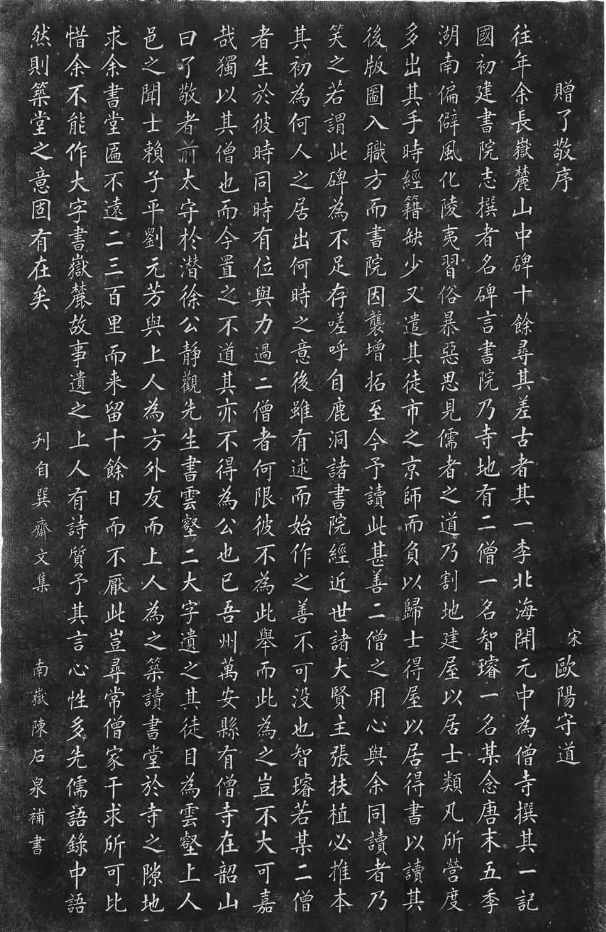 贈了敬序
宋 歐陽守道
往年余長嶽麓山中碑十餘尋其差古者其一李北海開元中為僧寺撰其一記
國初建書院志撰者名碑言書院乃寺地有二僧一名智璿一名某念唐末五季
湖南偏僻風化陵夷習俗暴惡思見儒者之道乃割地建屋以居士類凡所營度
多出其手時經籍缺少又遣其徒市之京師而負以歸士得屋以居得書以讀其
後版圖入職方而書院因襲增拓至今予讀此甚善二僧之用心與余同讀者乃
笑之若謂此碑為不足存嗟呼自鹿洞諸書院經近世諸大賢主張扶植必推本
其初為何人之居出何時之意後雖有述而始作之善不可没也智璿若某二僧
者生於彼時同時有位與力過二僧者何限彼不為此舉而此為之豈不大可嘉
哉獨以其僧也而今置之不道其亦不得為公也已吾州萬安縣有僧寺在韶山
曰了敬者前太守於潛徐公靜觀先生書雲壑二大字遺之其徒目為雲壑上人
邑之聞士賴子平劉元芳與上人為方外友而上人為之築讀書堂於寺之隙地
求余書堂匾不遠二三百里而来留十餘日而不厭此豈尋常僧家干求所可比
惜余不能作大字書嶽麓故事遺之上人有詩質予其言心性多先儒語錄中語
然則築堂之意固有在矣
刋自巽齋文集
南嶽陳石泉補書